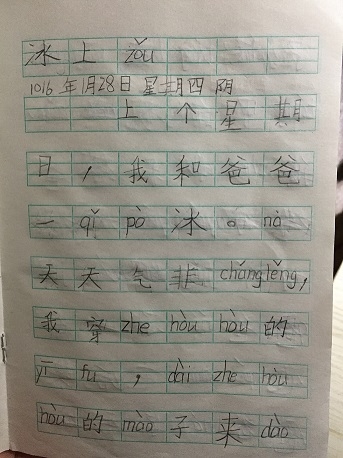 冰上 zǒu
1016年1月28日 星期四 阴
上个星期
日，我和爸爸
一 qǐ pò 冰。nà
天天气非 cháng lěng，
我穿 zhe hòu hòu 的
yī fu，dài zhe hòu
hòu 的 mào 子来 dào